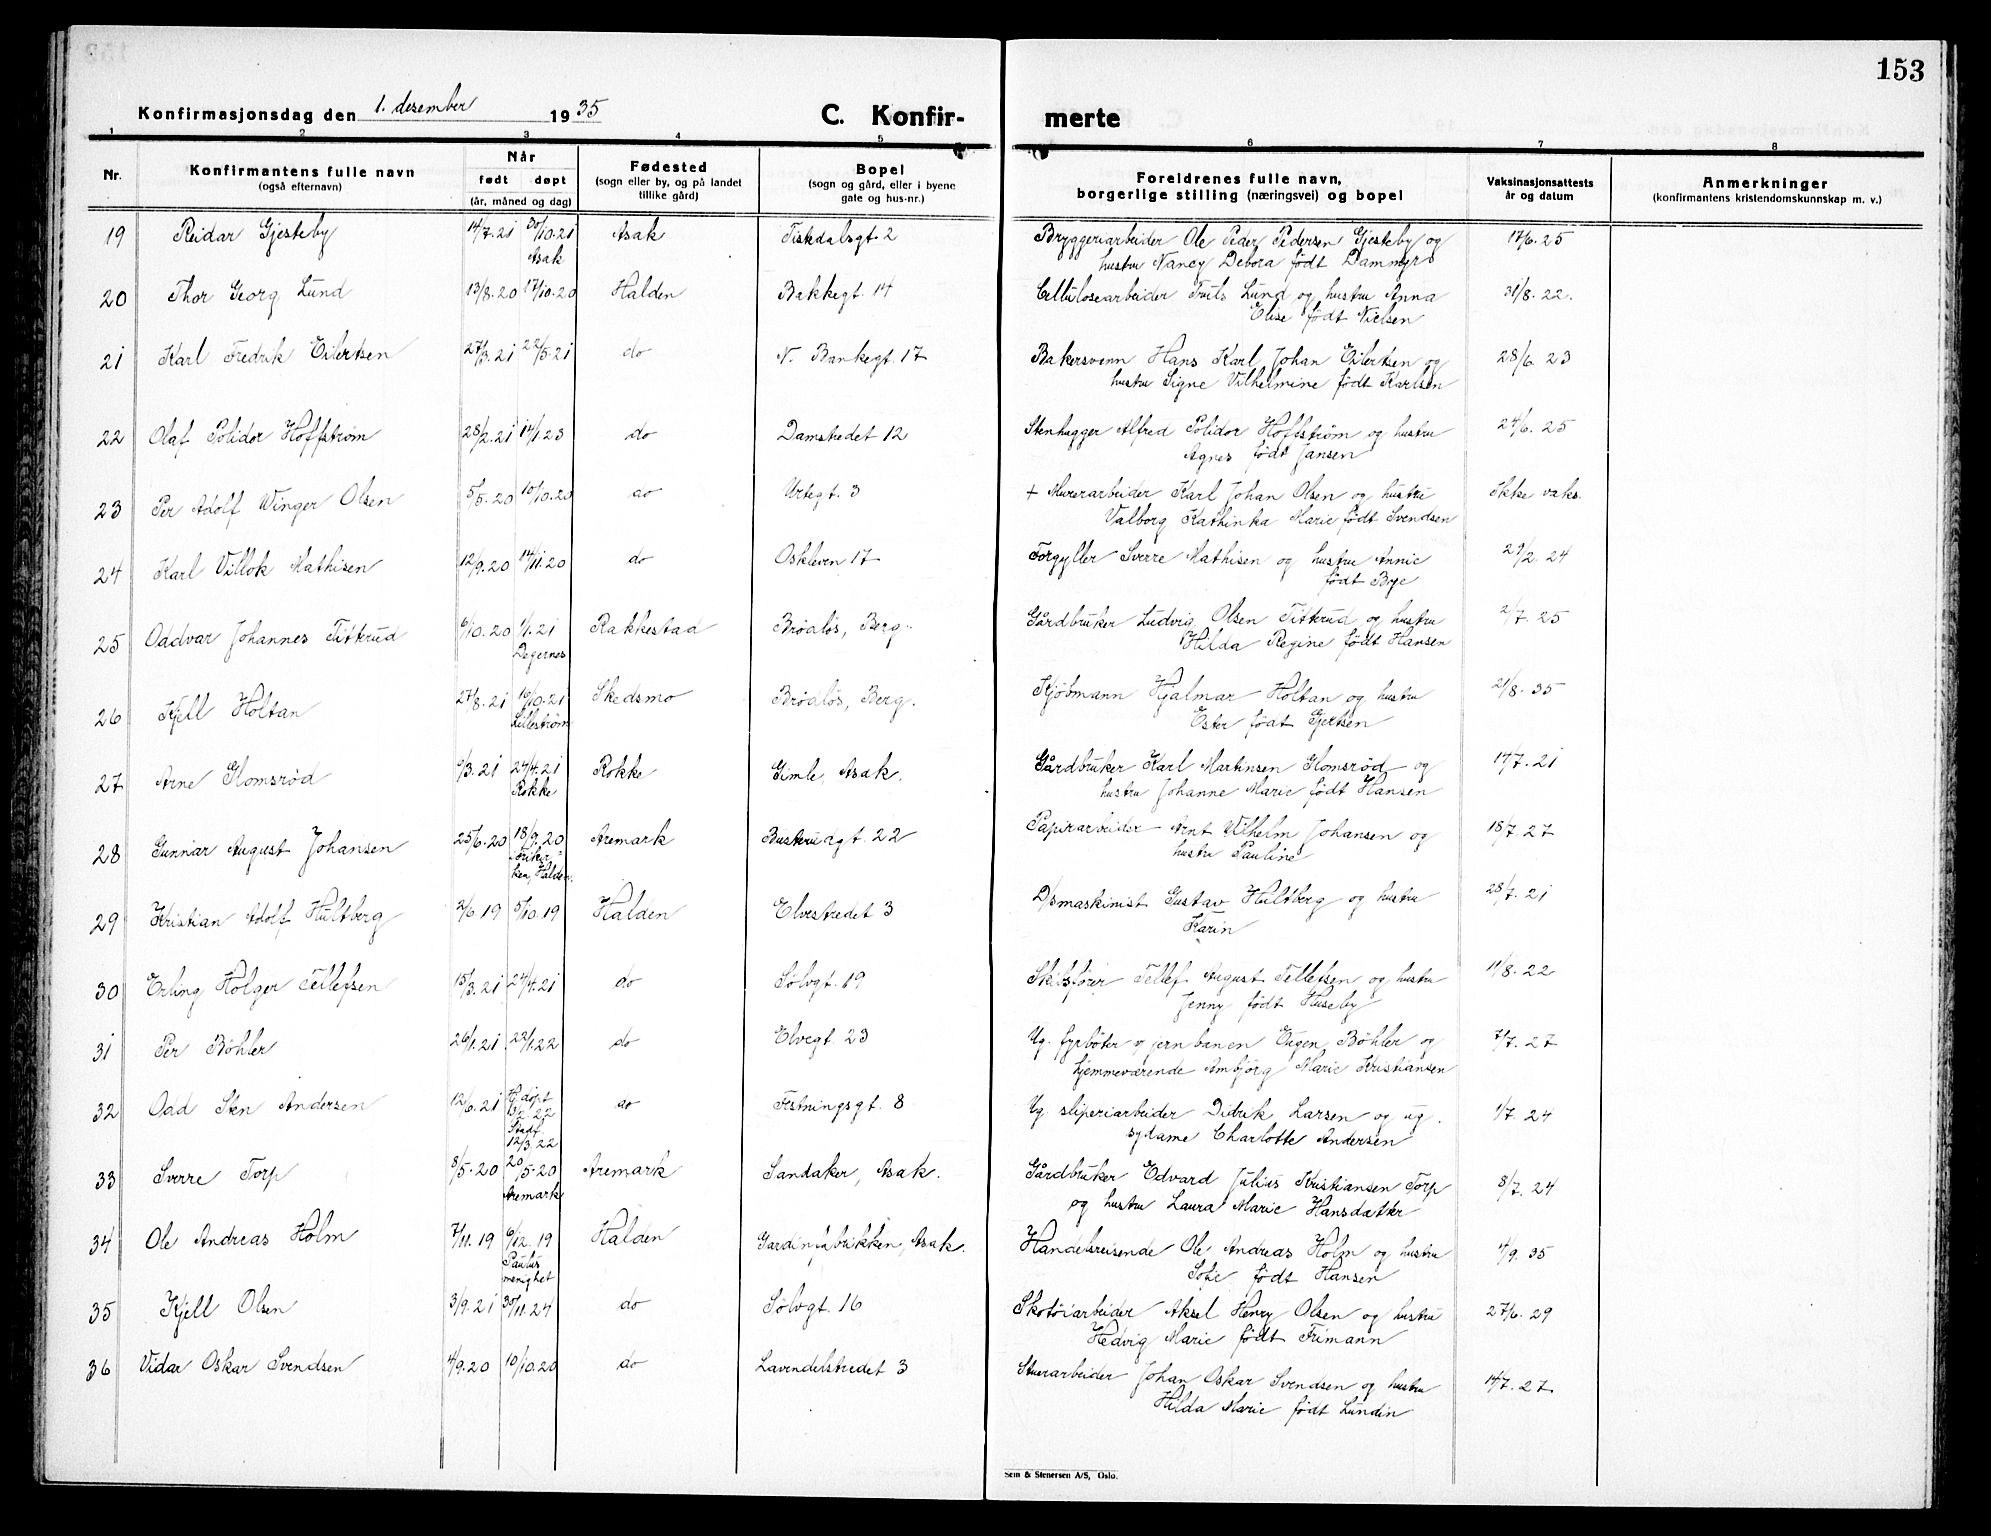 153
Konfirmasjonsdag den 1. desember 1935 C. Konfir- merte
1 2 3 4 5 6 7 8
Nr. Konfirmantens fulle navn (også efternavn) Når født døpt (år, måned og dag) Fødested (sogn eller by, og på landet tillike gård) Bopel (sogn og gård, eller i byene gate og hus-nr.) Foreldrenes fulle navn, borgerlige stilling (næringsvei) og bopel Vaksinasjonsattests år og datum Anmerkninger (konfirmantens kristendomskunnskap m. v.)
19 Reidar Gjesteby 14/7.21 30/10.21 Asak Tiskdalsgt. 2 Bryggeriarbeider Ole Peder Pedersen Gjesteby og 17/6.25
Asak hustru Nancy Debora født Dammyr
20 Thor Georg Lund 13/8.20 17/10.20 Halden Bakkegt. 14 Cellulosearbeider Truls Lund og hustru Anna 31/8.22.
Elise født Nielsen
21 Karl Fredrik Eilertsen 27/3.21 22/5.21 do N. Bankegt. 17 Bakersvenn Hans Karl Johan Eilertsen og 28/6.23
hustru Signe Vilhelmine født Karlsen
22 Olaf Polidor Hoffstrøm 28/2.21 14/1.23 do Damstredet 12 Stenhugger Alfred Polidor Hoffstrøm og hustru 24/6.25
Agnes født Jansen
23 Per Adolf Winger Olsen 5/5.20 10/10.20 do Urtegt. 3 + Murerarbeider Karl Johan Olsen og hustru Ikke vaks.
Valborg Kathinka Marie født Svendsen
24 Karl Villok Mathisen 12/9.20 14/11.20 do Oskleven 17 Forgyller Sverre Mathisen og hustru Annie 29/2.24
født Bye
25 Oddvar Johannes Tittrud 6/10.20 1/1.21 Rakkestad Brødløs, Berg. Gårdbruker Ludvig Olsen Tittrud og hustru 2/7.25
Degernes Hilda Regine født Hansen
26 Kjell Holtan 27/8.21 16/10.21 Skedsmo Brødløs, Berg. Kjøbmann Hjalmar Holtan og hustru 21/8.35
Lillestrøm Ester født Gjertsen
27 Arne Glomsrød 1/3.21 24/4.21 Rokke Gimle, Asak. Gårdbruker Karl Martinsen Glomsrød og 14/7.21
Rokke hustru Johanne Marie født Hansen
28 Gunnar August Johansen 25/6.20 18/9.20 Aremark Buskerudgt. 22 Papirarbeider Arnt Vilhelm Johansen og 18/7.27
ken, Halden. hustru Pauline
29 Kristian Adolf Hultberg 2/6.19 5/10.19 Halden Elvestredet 3 D/smaskinist Gustav Hultberg og hustru 28/7.21
Karin
30 Erling Holger Tellefsen 15/3.21 24/4.21 do Sølvgt. 19 Skibsfører Tellef August Tellefsen og hustru 11/8.22
Jenny født Huseby
31 Per Bøhler 26/1.21 22/1.22 do Elvegt. 23 Ug. fyrbøter v jernbanen Eugen Bøhler og 7/7.27
hjemmeværende Ambjørg Marie Kristiansen
32 Odd Sten Andersen 12/6.21 Hj.døpt do Festningsgt. 8 Ug. sliperiarbeider Didrik Larsen og ug. 1/7.24
13/2 22 Stadf. 12/3 22 sydame Charlotte Andersen
33 Sverre Torp 8/5.20 20/5.20 Aremark Sandaker, Asak. Gårdbruker Edvard Julius Kristiansen Torp 8/7.24
Aremark og hustru Laura Marie Hansdatter
34 Ole Andreas Holm 7/11.19 6/12.19 Halden Gardinfabrikken, Asak. Handelsreisende Ole Andreas Holm og hustru 4/9.35
Paulus menighet Sofie født Hansen
35 Kjell Olsen 3/9.21 30/11.24 do Sølvgt. 16 Skotøiarbeider Aksel Henry Olsen og hustru 27/6.29
Hedvig Marie født Frimann
36 Vidar Oskar Svendsen 4/9.20 10/10.20 do Lavendelstredet 3 Stuerarbeider Johan Oskar Svendsen og hustru 14/7.27
Hilda Marie født Lundin
Sem & Stenersen A/S, Oslo.